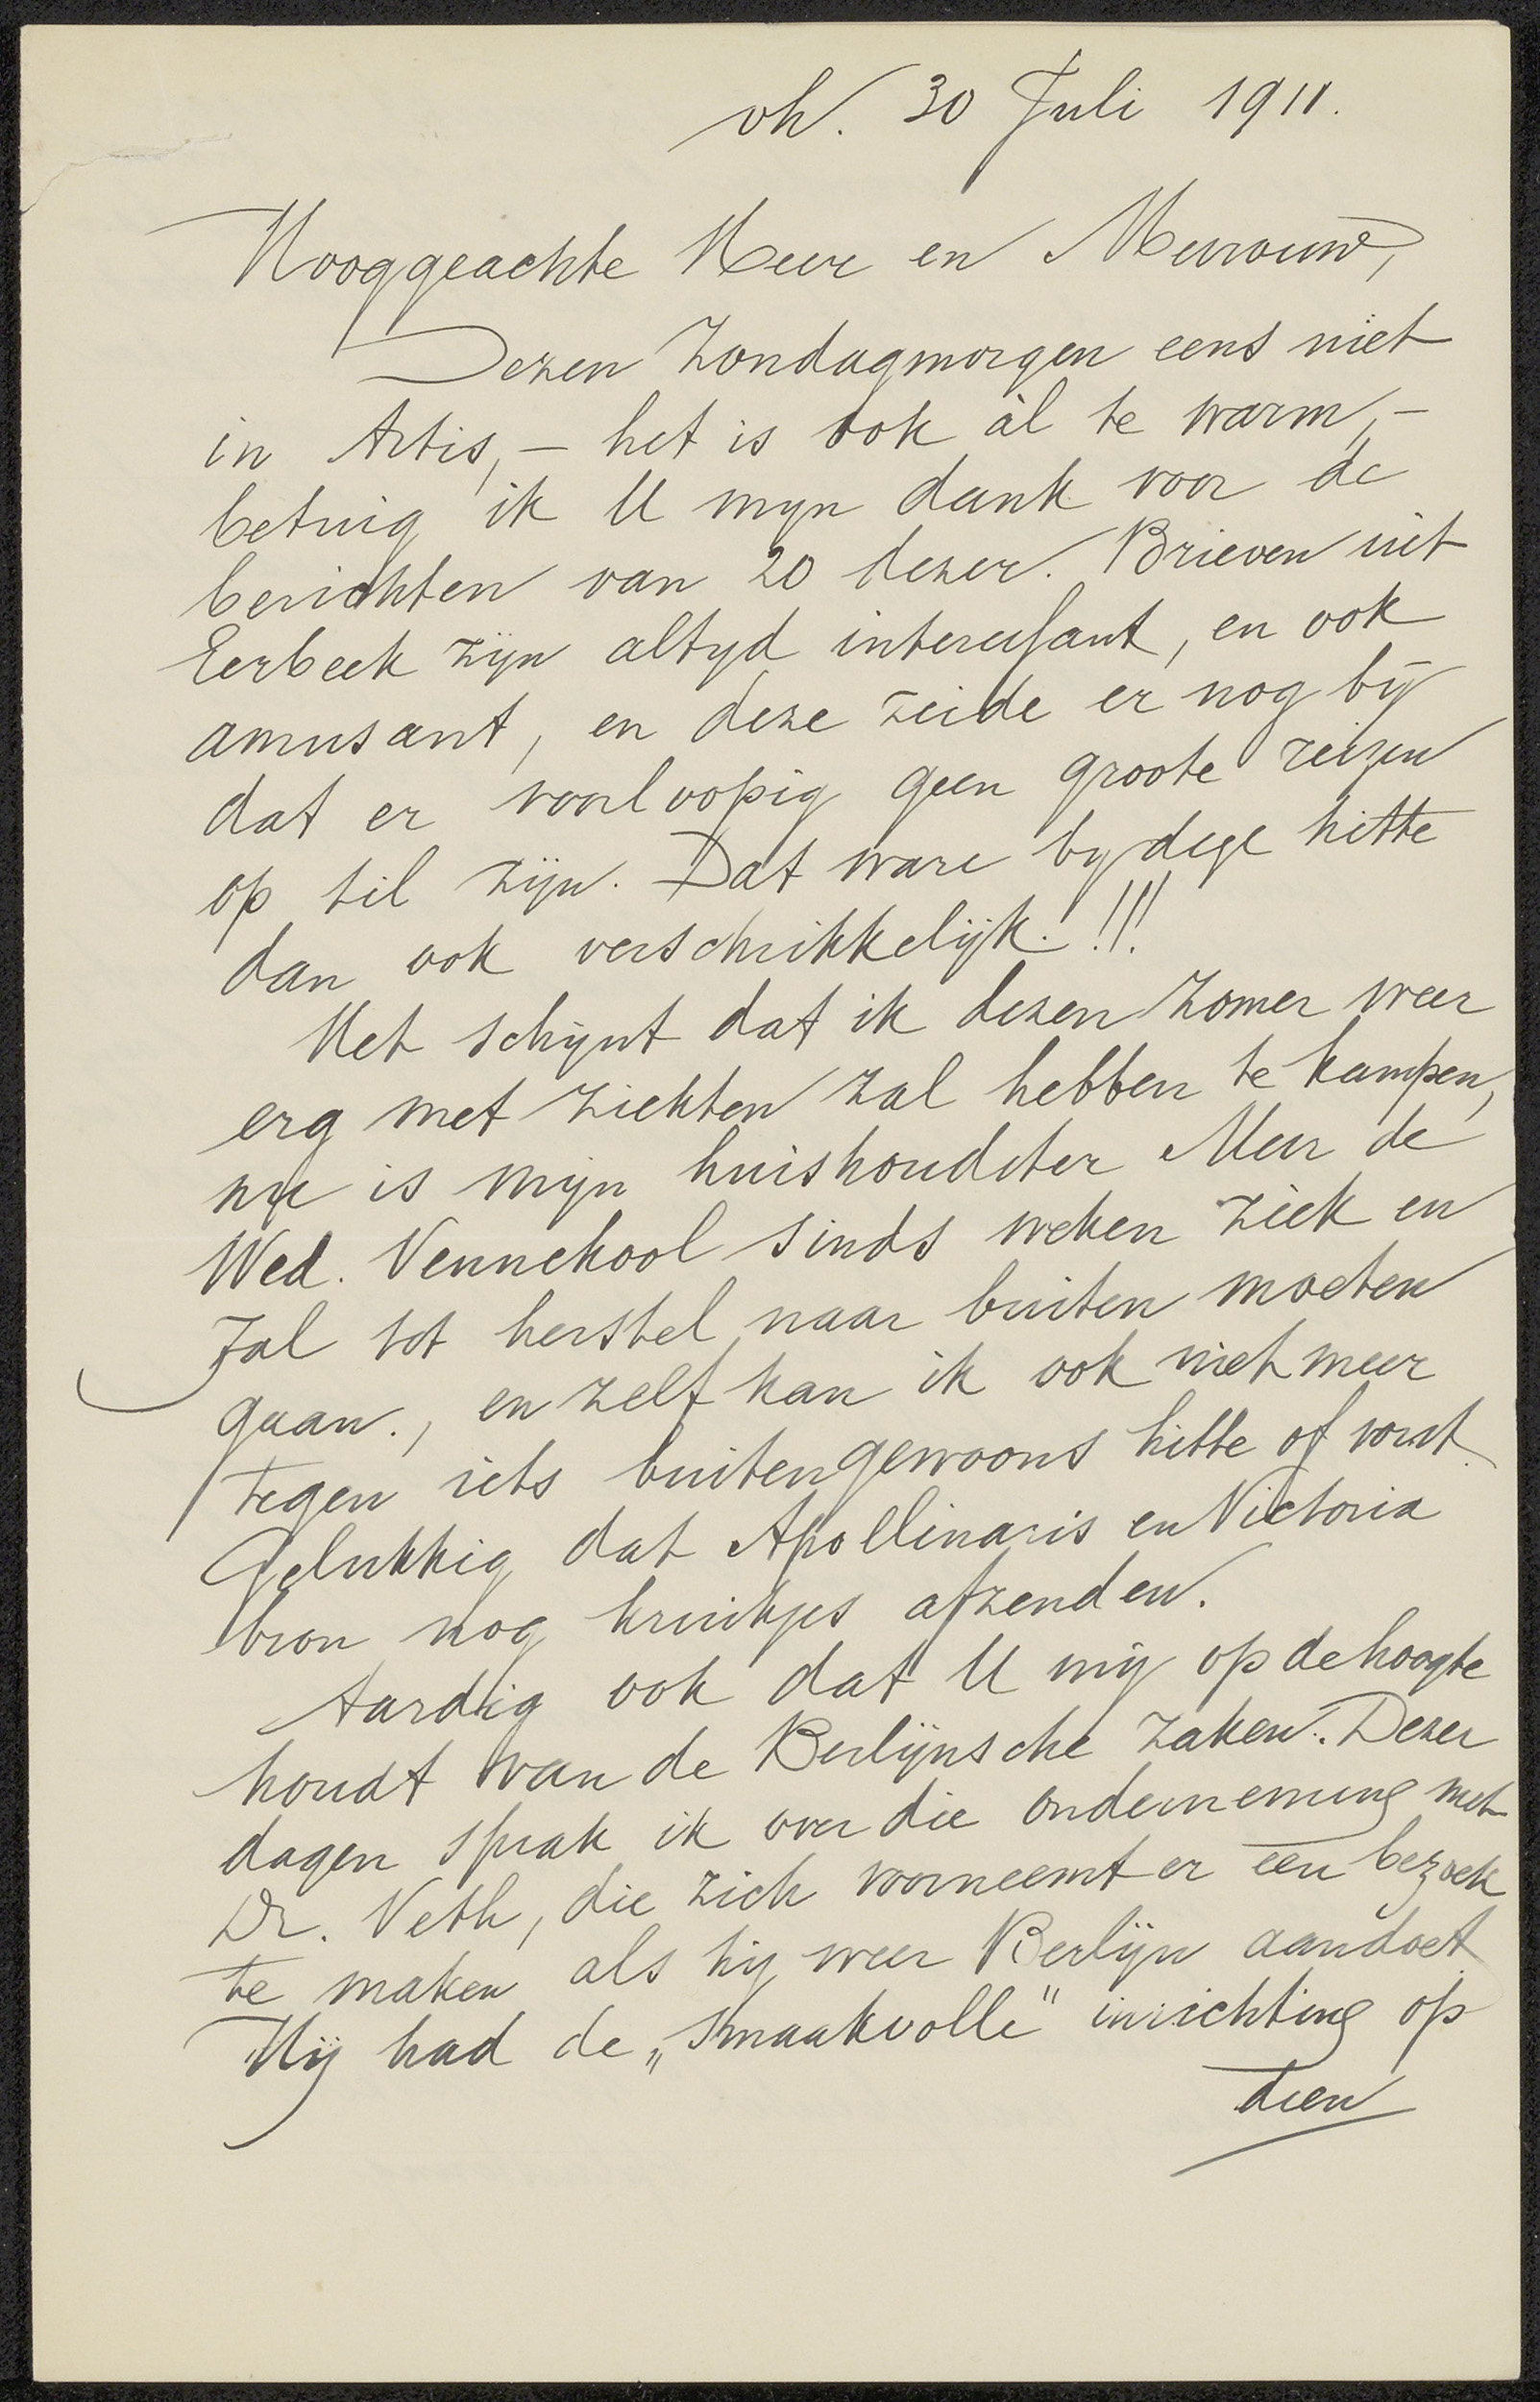 vh. 30 Juli 1911.
Hooggeachte Heer en Mevrouw,
Dezen Zondagmorgen eens niet
in Artis, – het is ook àl te warm, –
betuig ik U myn dank voor de
berichten van 20 dezer. Brieven uit
Eerbeek zijn altyd interessant, en ook
amusant, en deze zeide er nog bij
dat er voorloopig geen groote reizen
op til zijn. Dat ware by dege hitte
dan ook verschrikkelijk. !!!
Het schijnt dat ik dezen Zomer weer
erg met ziekten zal hebben te kampen,
nu is mijn huishoudster Mevr de
Wed. Vennekool sinds weken ziek en
zal tot herstel naar buiten moeten
gaan., en zelf kan ik ook niet meer
tegen iets buitengewoons hitte of vorst.
Gelukkig dat Apollinaris en Victoria
bron nog kruikjes afzenden.
Aardig ook dat U mij op de hoogte
houdt van de Berlijnsche zaken. Dezer
dagen sprak ik over die onderneming met
Dr. Veth, die zich voorneemt er een bezoek
te maken als hij weer Berlijn aandoet
Hij had de „smaakvolle" inrichting op
dien